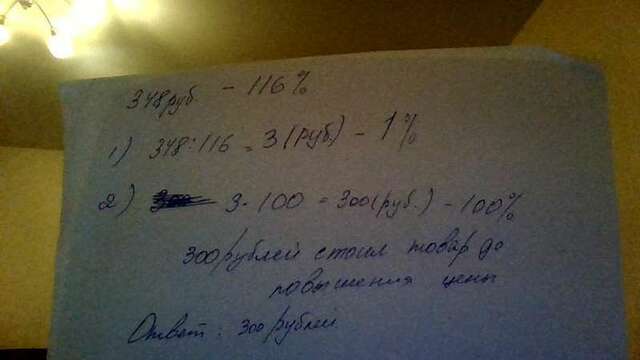 348 руб. - 116%
1) 348:116 = 3 (руб.) - 1%
2) 3·100 = 300 (руб.) - 100%
300 рублей стоил товар до
повышения цены
Ответ: 300 рублей